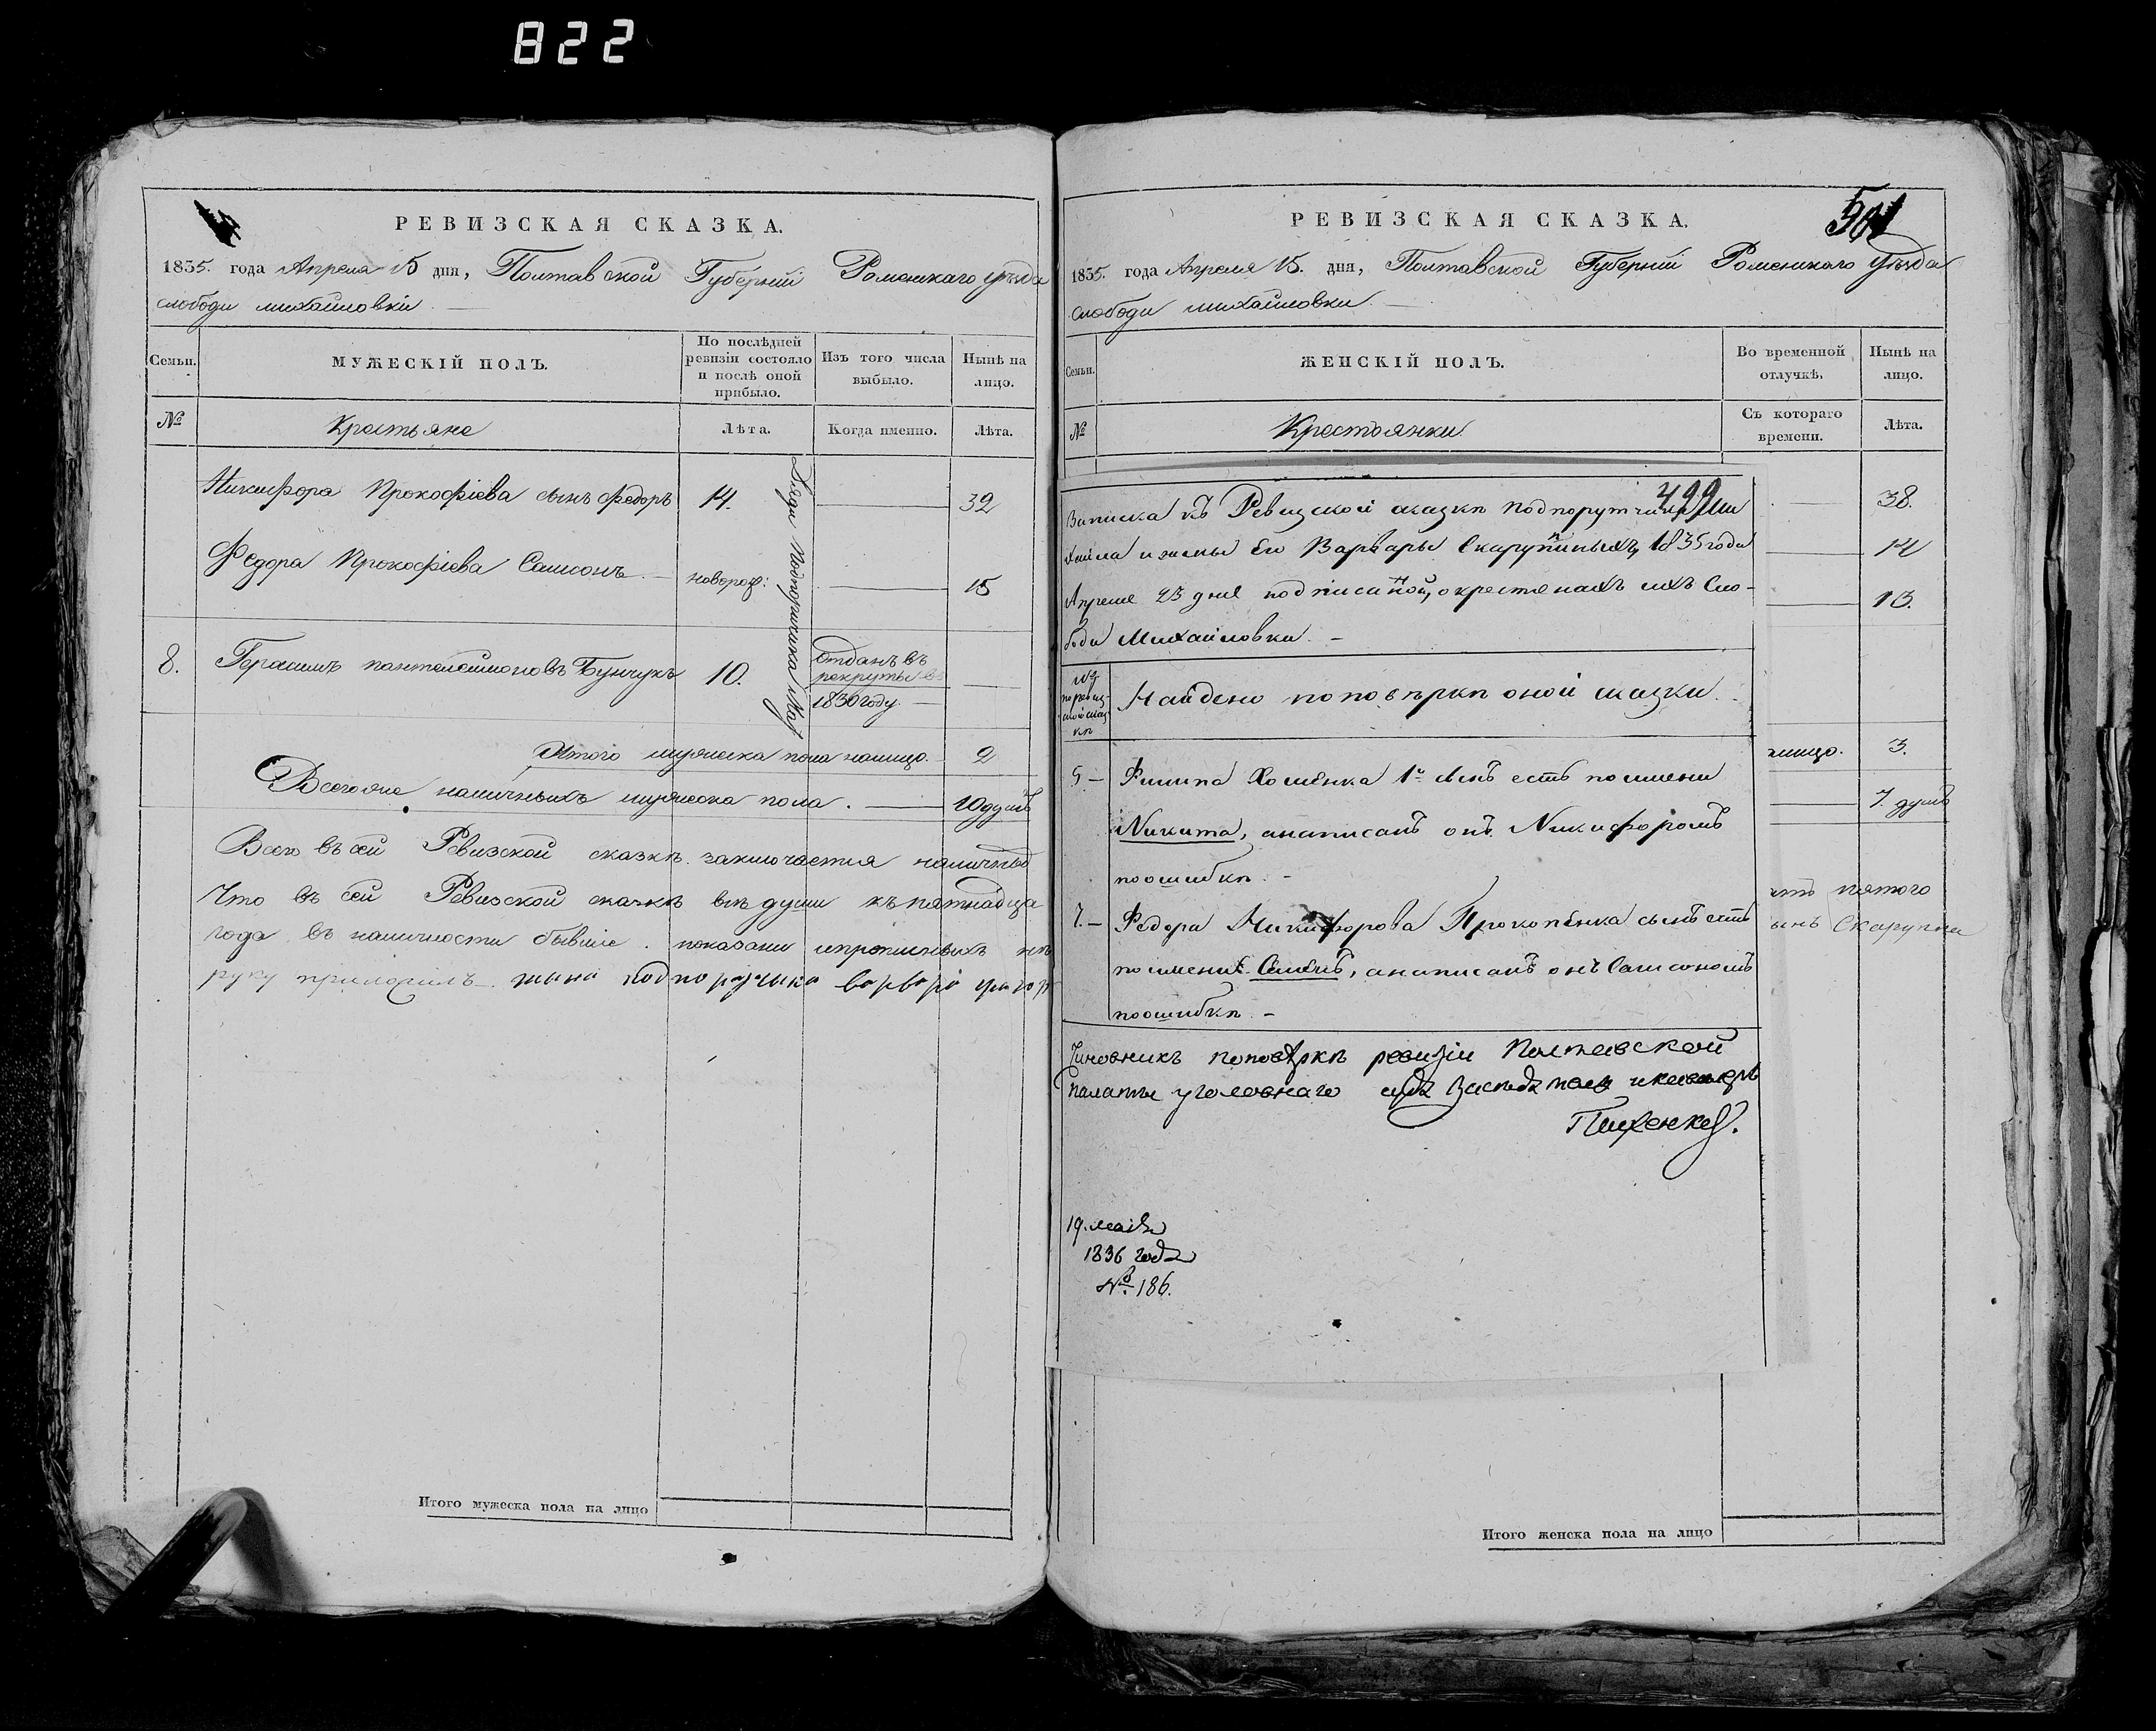 822
РЕВИЗСКАЯ СКАЗКА.
1835. года Апреля 15 дня, Полтавской Губерніи Роменскаго уѣзда
слободи михайловки
Семьи.
МУЖЕСКІЙ ПОЛЪ.
По послѣдней ревизіи состояло и послѣ оной прибыло.
Изъ того числа выбыло.
Нынѣ на лицо.
№
Крестьяне
Лѣта.
Когда именно.
Лѣта.
Никифора Прокофіева сынъ Федоръ 14. 32
Федора Прокофіева Самсонъ новорож: 15
8. Герасимъ пантелеимоновъ Бунчукъ 10. Отданъ въ рекруты въ 1830 году.
Итого мужеска пола налицо. 2
Всегоже наличныхъ мужеска пола. 10 душъ
Всего въ сей Ревизской сказкѣ заключается наличныхъ
Что въ сей Ревизской сказкѣ всѣ души къ пятнадца
года въ наличности бывшіе показани ипрописныхъ нѣ
руку приложилъ жина подпоручика варвара
Итого мужеска пола на лицо
РЕВИЗСКАЯ СКАЗКА.
501
1835. года Апреля 15. дня, Полтавской Губерніи Роменскаго уѣзда
слободи михайловки
Семьи.
ЖЕНСКІЙ ПОЛЪ.
Во временной отлучкѣ.
Нынѣ на лицо.
№
Крестьянки
Съ котораго времени.
Лѣта.
38.
14
13.
лицо. 3.
7. душъ
пятого
Скарупка
499
Выписка къ Ревизской сказкѣ подпорутчика Ми
хаила и жены его Варвары Скарупиныхъ, 1835 года
Апреля 23 дня подписаной, о крестянахъ ихъ Сло-
боди Михайловки. -
Найдено поповѣркѣ оной сказки.
5. - Филипа Хоменка 1й сынъ есть по имени
Никита, анаписанъ онъ Никифоромъ
поошибкѣ. -
7. - Федора Никифорова Прокопенка сынъ есть
по имени Семенъ, анаписанъ онъ Самсономъ
поошибкѣ. -
Чиновникъ поповѣркѣ ревизіи Полтавской
Палаты уголовнаго суда Засѣдатель
19. маія
1836 года
№ 186.
Итого женска пола на лицо